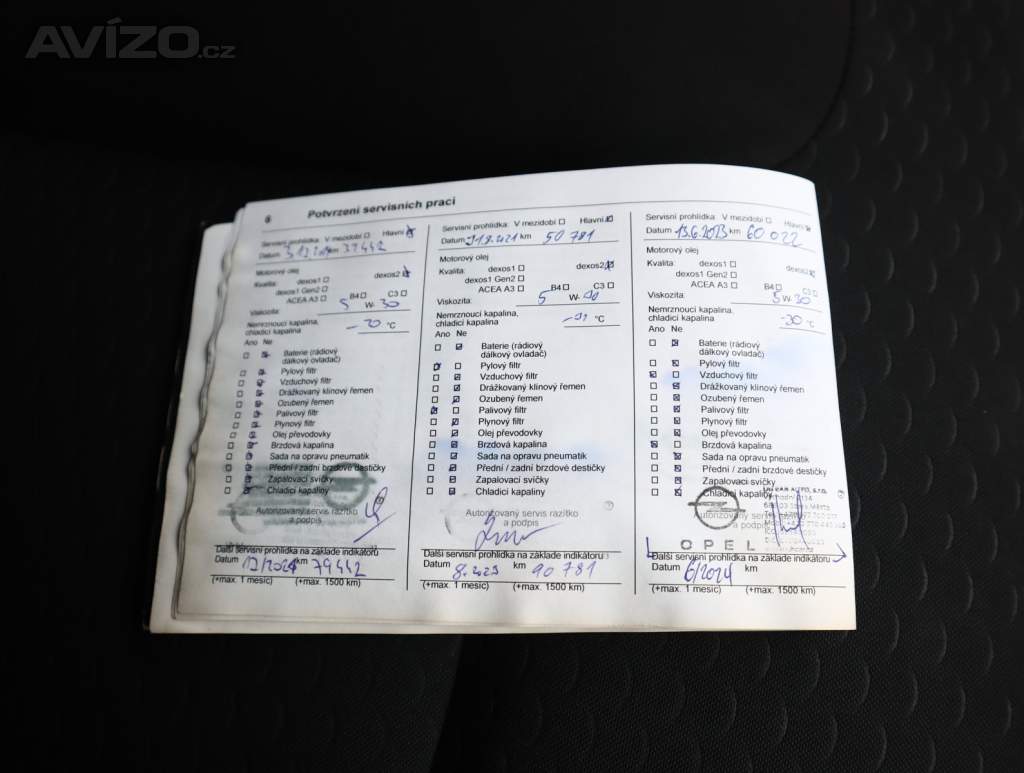 AVÍZO.cz
6 Potvrzení servisních prací
Servisní prohlídka: V mezidobí Hlavní
Datum km 37442
Motorový olej
Kvalita: dexos1 dexos2
dexos1 Gen2
ACEA A3 B4 C3
Viskozita: 5 W- 30
Nemrznoucí kapalina,
chladicí kapalina -20 °C
Ano Ne
Baterie (rádiový
dálkový ovladač)
Pylový filtr
Vzduchový filtr
Drážkovaný klínový řemen
Ozubený řemen
Palivový filtr
Plynový filtr
Olej převodovky
Brzdová kapalina
Sada na opravu pneumatik
Přední / zadní brzdové destičky
Zapalovací svíčky
Chladicí kapaliny
Autorizovaný servis razítko
a podpis
Další servisní prohlídka na základe indikátoru
Datum 12/2021 km 79442
(+max. 1 mesíc) (+max. 1500 km)
Servisní prohlídka: V mezidobí Hlavní
Datum km 50 781
Motorový olej
Kvalita: dexos1 dexos2
dexos1 Gen2
ACEA A3 B4 C3
Viskozita: 5 W-
Nemrznoucí kapalina,
chladicí kapalina °C
Ano Ne
Baterie (rádiový
dálkový ovladač)
Pylový filtr
Vzduchový filtr
Drážkovaný klínový řemen
Ozubený řemen
Palivový filtr
Plynový filtr
Olej převodovky
Brzdová kapalina
Sada na opravu pneumatik
Přední / zadní brzdové destičky
Zapalovací svíčky
Chladicí kapaliny
Autorizovaný servis razítko
a podpis
Další servisní prohlídka na základe indikátoru
Datum km 90 781
(+max. 1 mesíc) (+max. 1500 km)
Servisní prohlídka: V mezidobí Hlavní
Datum 13.6.2023 km 60 022
Motorový olej
Kvalita: dexos1 dexos2
dexos1 Gen2
ACEA A3 B4 C3
Viskozita: 5 W-30
Nemrznoucí kapalina,
chladicí kapalina -30 °C
Ano Ne
Baterie (rádiový
dálkový ovladač)
Pylový filtr
Vzduchový filtr
Drážkovaný klínový řemen
Ozubený řemen
Palivový filtr
Plynový filtr
Olej převodovky
Brzdová kapalina
Sada na opravu pneumatik
Přední / zadní brzdové destičky
Zapalovací svíčky
Chladicí kapaliny
Autorizovaný servis
a podpis
OPEL
Další servisní prohlídka na základe indikátoru
Datum 6/2024 km
(+max. 1 mesíc) (+max. 1500 km)